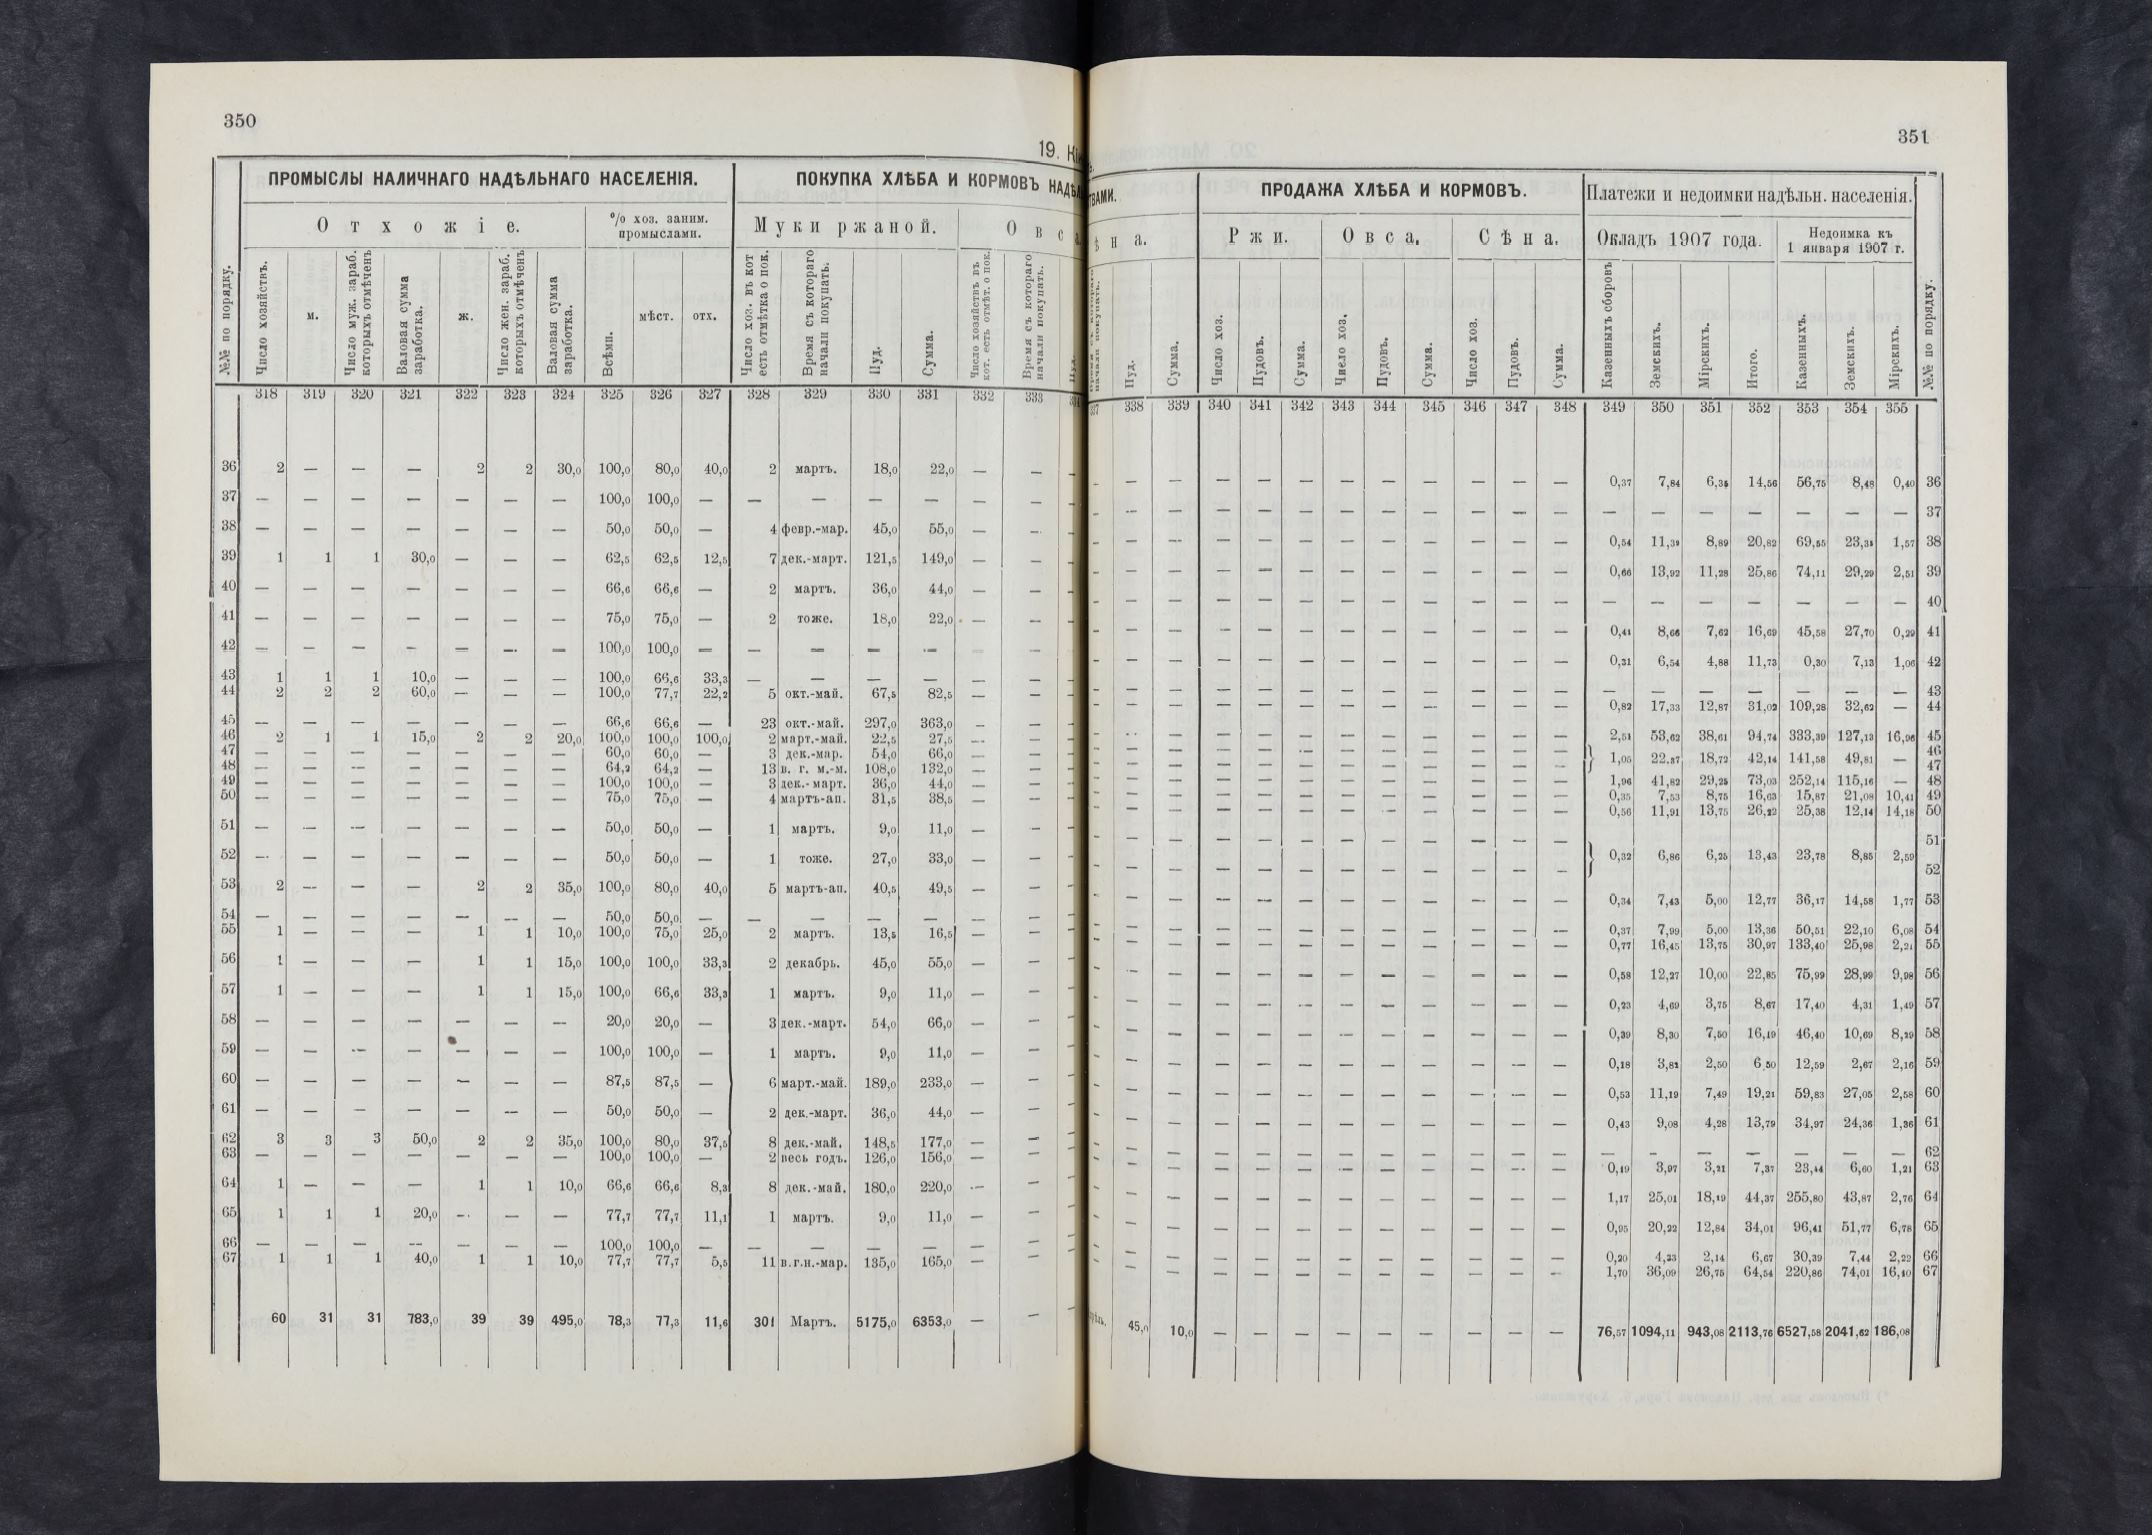 350
19.
ПРОМЫСЛЫ НАЛИЧНАГО НАДѢЛЬНАГО НАСЕЛЕНІЯ.
ПОКУПКА ХЛѢБА И КОРМОВЪ
Отхожіе.
% хоз. заним. промыслами.
Муки ржаной.
Овса
№№ по порядку.
Число хозяйствъ.
м.
Число муж. зараб. которыхъ отмѣченъ
Валовая сумма заработка.
ж.
Число жен. зараб. которыхъ отмѣченъ
Валовая сумма заработка.
Всѣми.
мѣст.
отх.
Число хоз. въ кот есть отмѣтка о пок.
Время съ котораго начали покупать.
Пуд.
Сумма.
Число хозяйствъ въ кот. есть отмѣт. о пок.
Время съ котораго начали покупать.
318 319 320 321 322 323 324 325 326 327 328 329 330 331 332 333
36 2 — — — 2 2 30,0 100,0 80,0 40,0 2 мартъ. 18,0 22,0 — — —
37 — — — — — — — 100,0 100,0 — — — — — — — —
38 — — — — — — — 50,0 50,0 — 4 февр.-мар. 45,0 55,0 — — —
39 1 1 1 30,0 — — — 62,5 62,5 12,5 7 дек.-март. 121,5 149,0 — — —
40 — — — — — — — 66,6 66,6 — 2 мартъ. 36,0 44,0 — — —
41 — — — — — — — 75,0 75,0 — 2 тоже. 18,0 22,0 — — —
42 — — — — — — — 100,0 100,0 — — — — — — — —
43 1 1 1 10,0 — — — 100,0 66,6 33,3 — — — — — — —
44 2 2 2 60,0 — — — 100,0 77,7 22,2 5 окт.-май. 67,5 82,5 — — —
45 — — — — — — — 66,6 66,6 — 23 окт.-май. 297,0 363,0 — — —
46 2 1 1 15,0 2 2 20,0 100,0 100,0 100,0 2 март.-май. 22,5 27,5 — — —
47 — — — — — — — 60,0 60,0 — 3 дек.-мар. 54,0 66,0 — — —
48 — — — — — — — 64,2 64,2 — 13 в. г. м.-м. 108,0 132,0 — — —
49 — — — — — — — 100,0 100,0 — 3 дек.-март. 36,0 44,0 — — —
50 — — — — — — — 75,0 75,0 — 4 мартъ-ап. 31,5 38,5 — — —
51 — — — — — — — 50,0 50,0 — 1 мартъ. 9,0 11,0 — — —
52 — — — — — — — 50,0 50,0 — 1 тоже. 27,0 33,0 — — —
53 2 — — — 2 2 35,0 100,0 80,0 40,0 5 мартъ-ап. 40,5 49,5 — — —
54 — — — — — — — 50,0 50,0 — — — — — — — —
55 1 — — — 1 1 10,0 100,0 75,0 25,0 2 мартъ. 13,5 16,5 — — —
56 1 — — — 1 1 15,0 100,0 100,0 33,3 2 декабрь. 45,0 55,0 — — —
57 1 — — — 1 1 15,0 100,0 66,6 33,3 1 мартъ. 9,0 11,0 — — —
58 — — — — — — — 20,0 20,0 — 3 дек.-март. 54,0 66,0 — — —
59 — — — — — — — 100,0 100,0 — 1 мартъ. 9,0 11,0 — — —
60 — — — — — — — 87,5 87,5 — 6 март.-май. 189,0 233,0 — — —
61 — — — — — — — 50,0 50,0 — 2 дек.-март. 36,0 44,0 — — —
62 3 3 3 50,0 2 2 35,0 100,0 80,0 37,5 8 дек.-май. 148,5 177,0 — — —
63 — — — — — — — 100,0 100,0 — 2 весь годъ. 126,0 156,0 — — —
64 1 — — — 1 1 10,0 66,6 66,6 8,3 8 дек.-май. 180,0 220,0 — — —
65 1 1 1 20,0 — — — 77,7 77,7 11,1 1 мартъ. 9,0 11,0 — — —
66 — — — — — — — 100,0 100,0 — — — — — — — —
67 1 1 1 40,0 1 1 10,0 77,7 77,7 5,5 11 в.г.н.-мар. 135,0 165,0 — — —
60 31 31 783,0 39 39 495,0 78,3 77,3 11,6 301 Мартъ. 5175,0 6353,0 — — —
351
ПРОДАЖА ХЛѢБА И КОРМОВЪ.
Платежи и недоимки надѣльн. населенія.
Ржи.
Овса.
Сѣна.
Окладъ 1907 года.
Недоимка къ 1 января 1907 г.
Пуд.
Сумма.
Число хоз.
Пудовъ.
Сумма.
Число хоз.
Пудовъ.
Сумма.
Число хоз.
Пудовъ.
Сумма.
Казенныхъ сборовъ
Земскихъ.
Мірскихъ.
Итого.
Казенныхъ.
Земскихъ.
Мірскихъ.
№№ по порядку.
338 339 340 341 342 343 344 345 346 347 348 349 350 351 352 353 354 355
— — — — — — — — — — — — 0,37 7,84 6,35 14,56 56,75 8,48 0,40 36
— — — — — — — — — — — — — — — — — — — 37
— — — — — — — — — — — — 0,54 11,39 8,89 20,82 69,55 23,31 1,57 38
— — — — — — — — — — — — 0,66 13,92 11,28 25,86 74,11 29,29 2,51 39
— — — — — — — — — — — — — — — — — — — 40
— — — — — — — — — — — — 0,41 8,66 7,62 16,69 45,58 27,70 0,29 41
— — — — — — — — — — — — 0,31 6,54 4,88 11,73 0,30 7,13 1,06 42
— — — — — — — — — — — — — — — — — — — 43
— — — — — — — — — — — — 0,82 17,33 12,87 31,02 109,28 32,62 — 44
— — — — — — — — — — — — 2,51 53,62 38,61 94,74 333,39 127,13 16,96 45
— — — — — — — — — — — — 46
— — — — — — — — — — — — } 1,05 22,37 18,72 42,14 141,58 49,81 — 47
— — — — — — — — — — — — 1,96 41,82 29,25 73,03 252,14 115,16 — 48
— — — — — — — — — — — — 0,35 7,53 8,75 16,63 15,87 21,08 10,41 49
— — — — — — — — — — — — 0,56 11,91 13,75 26,22 25,38 12,14 14,18 50
— — — — — — — — — — — — 51
} 0,32 6,86 6,25 13,43 23,78 8,85 2,59
— — — — — — — — — — — — 52
— — — — — — — — — — — — 0,34 7,43 5,00 12,77 36,17 14,58 1,77 53
— — — — — — — — — — — — 0,37 7,99 5,00 13,36 50,51 22,10 6,08 54
— — — — — — — — — — — — 0,77 16,45 13,75 30,97 133,40 25,98 2,21 55
— — — — — — — — — — — — 0,58 12,27 10,00 22,85 75,99 28,99 9,98 56
— — — — — — — — — — — — 0,23 4,69 3,75 8,67 17,40 4,31 1,49 57
— — — — — — — — — — — — 0,39 8,30 7,50 16,19 46,40 10,69 8,29 58
— — — — — — — — — — — — 0,18 3,82 2,50 6,50 12,59 2,67 2,16 59
— — — — — — — — — — — — 0,53 11,19 7,49 19,21 59,83 27,05 2,58 60
— — — — — — — — — — — — 0,43 9,08 4,28 13,79 34,97 24,36 1,36 61
— — — — — — — — — — — — — — — — — — — 62
— — — — — — — — — — — — 0,19 3,97 3,21 7,37 23,44 6,60 1,21 63
— — — — — — — — — — — — 1,17 25,01 18,19 44,37 255,80 43,87 2,76 64
— — — — — — — — — — — — 0,95 20,22 12,84 34,01 96,41 51,77 6,78 65
— — — — — — — — — — — — 0,20 4,33 2,14 6,67 30,39 7,44 2,22 66
— — — — — — — — — — — — 1,70 36,09 26,75 64,54 220,86 74,01 16,10 67
45,0 10,0 — — — — — — — — — 76,57 1094,11 943,08 2113,76 6527,58 2041,62 186,08